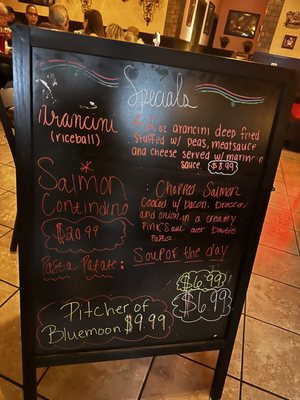 Specials
Arancini
(riceball)
: 2 oz arancini deep fried
stuffed w/ peas, meatsauce
and cheese served w/ marinara
sauce. $8.99
Salmon
Contindino
$20.99
: Chopped Salmon
Cooked w/ bacon, broccoli
and onion in a creamy
Pink Sauce over
Pasta
Pasta Patate:
Soup of the day
$6.99
$6.99
Pitcher of
Bluemoon $9.99